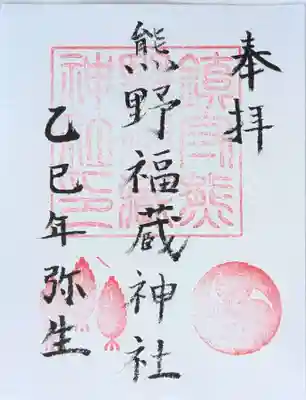 奉拝
熊野福蔵神社
乙巳年弥生